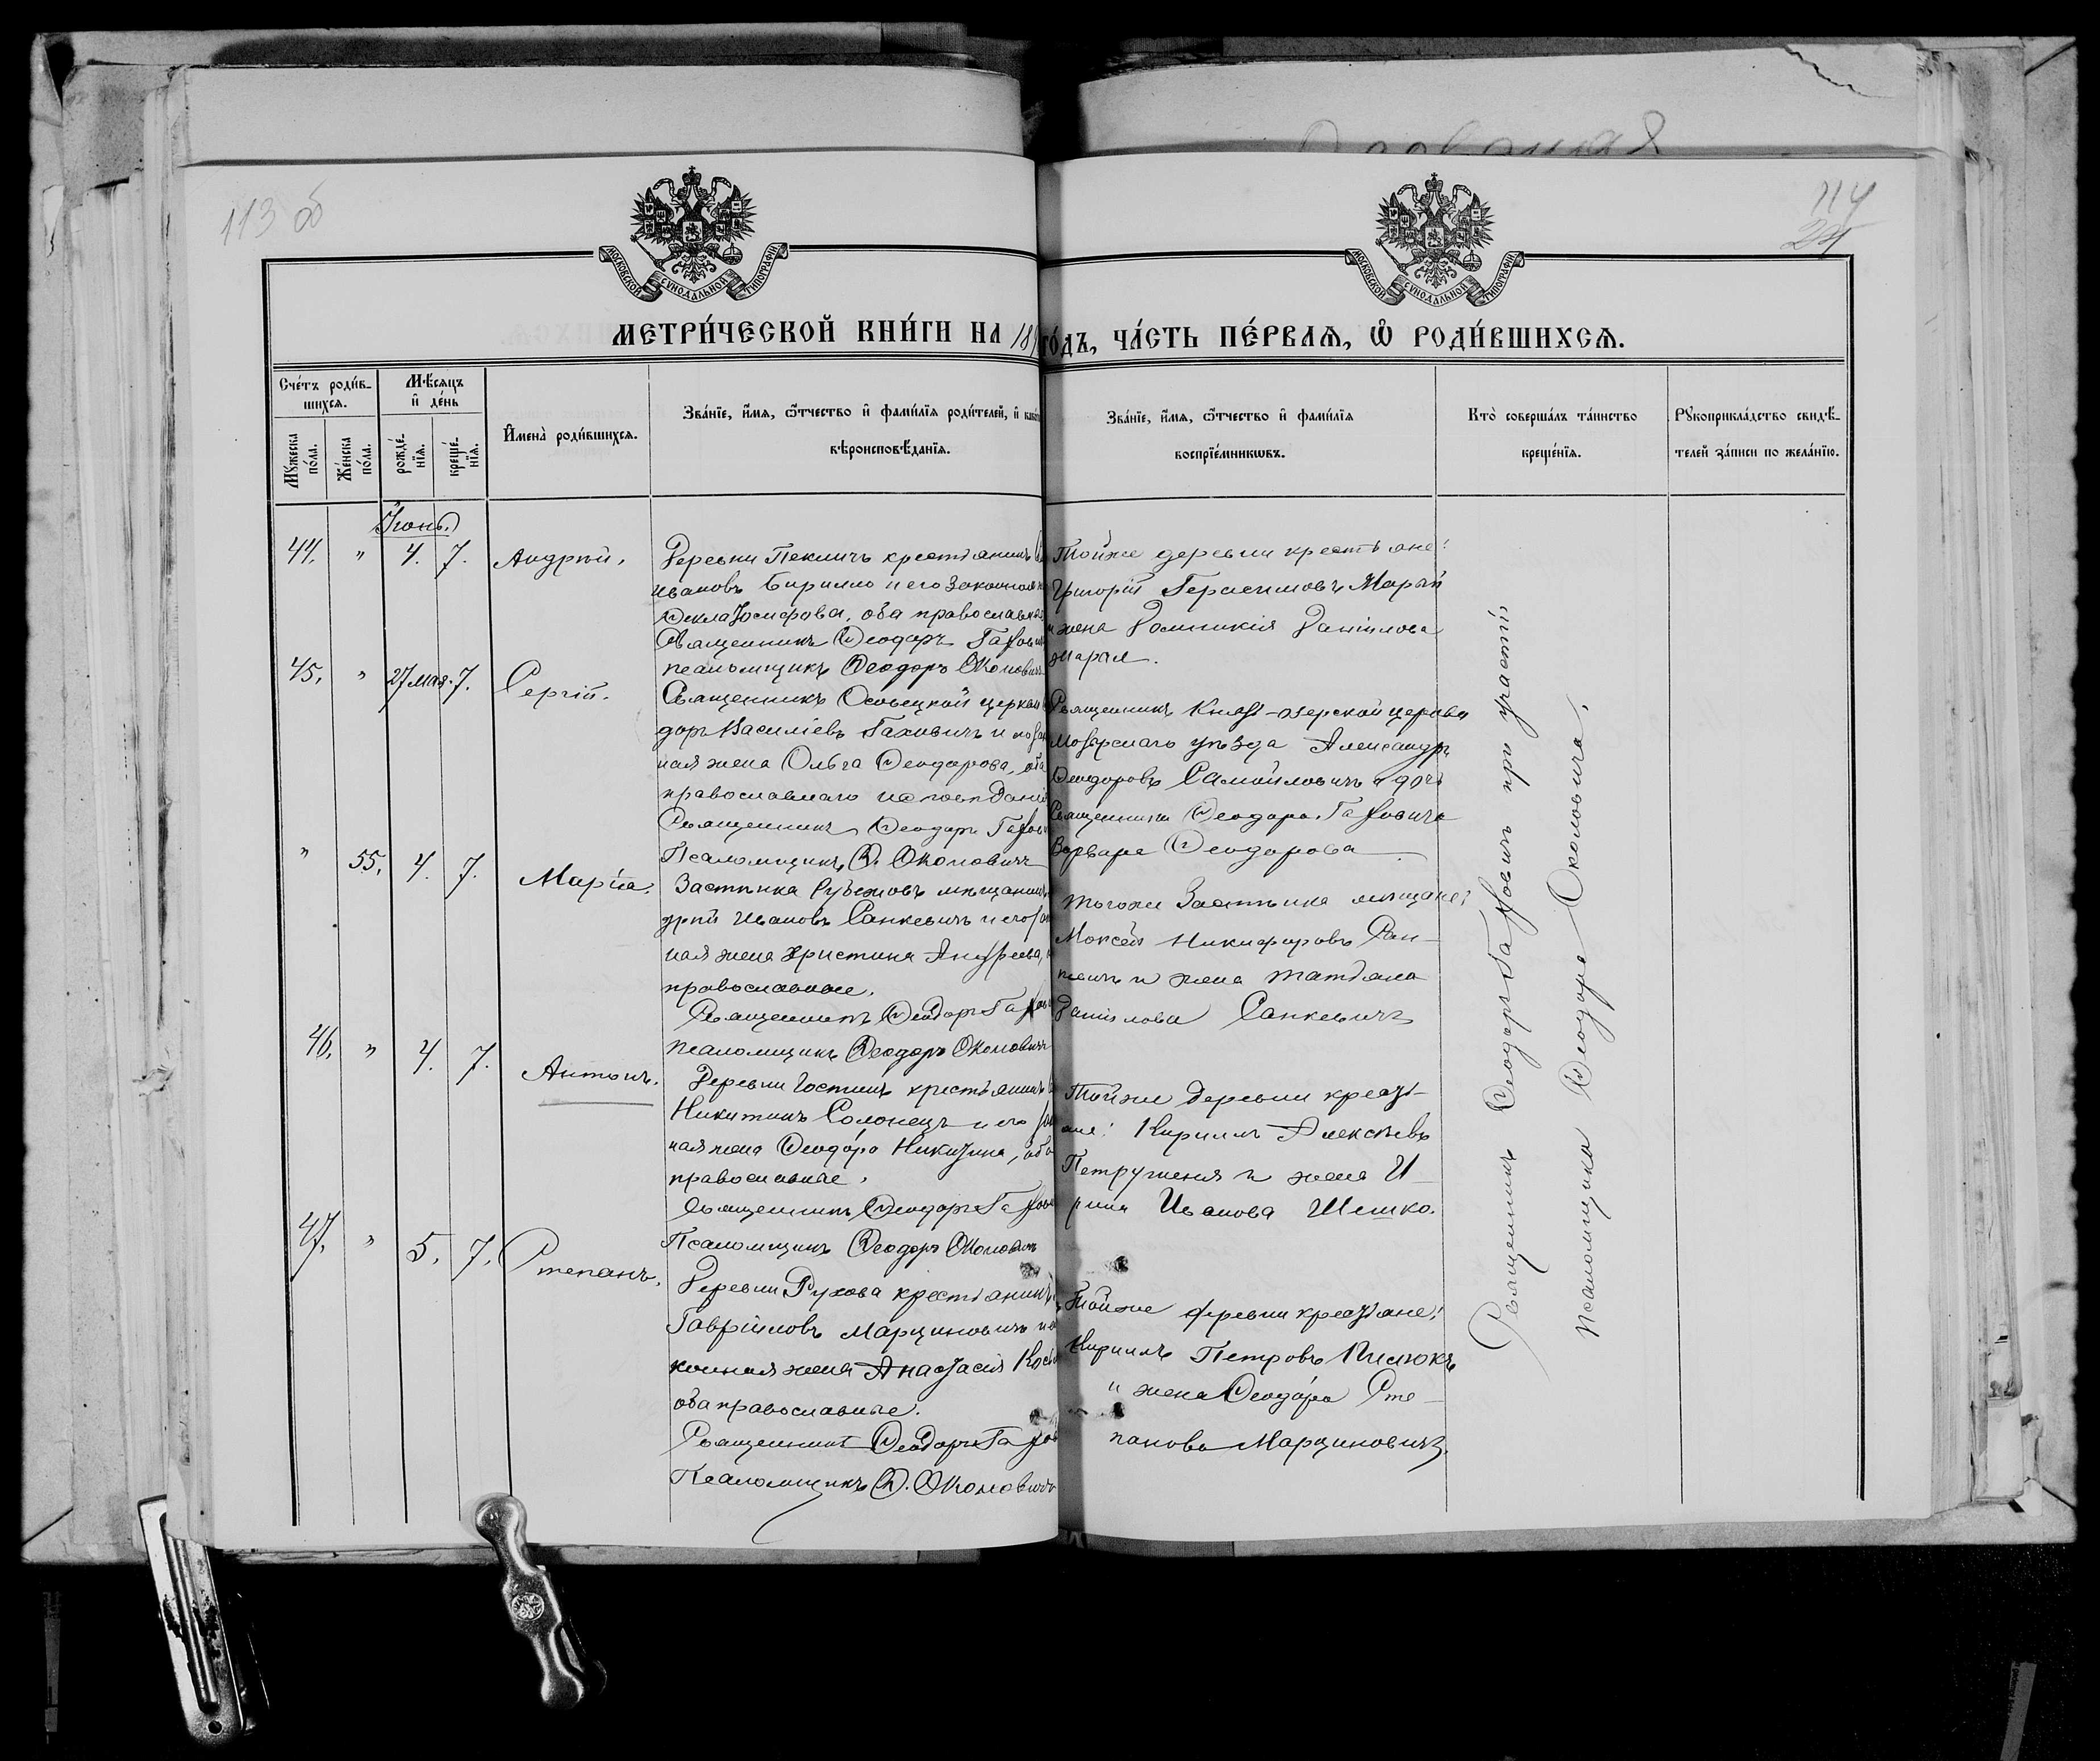 113 об
114
24
МОСКОВСКОЙ СѴНОДАЛЬНОЙ ТИПОГРАФІИ
МОСКОВСКОЙ СѴНОДАЛЬНОЙ ТИПОГРАФІИ
МЕТРИ́ЧЕСКОЙ КНИ́ГИ НА 18
го́дъ, ЧА́СТЬ ПЕ́РВАѦ, Ѡ҆ РОДИ́ВШИХСѦ.
Сче́тъ роди́в-
шихсѧ.
Мꙋ́жеска по́ла.
Же́нска по́ла.
Мѣ́сѧцъ и҆ де́нь
рожде́-
нїѧ.
креще́-
нїѧ.
И҆мена̀ роди́вшихсѧ.
Зва́нїе, и҆́мѧ, ѻ҆́тчество и҆ фами́лїѧ роди́телей, и҆ како
вѣроисповѣ́данїѧ.
Зва́нїе, и҆́мѧ, ѻ҆́тчество и҆ фами́лїѧ
воспрїе́мникѡвъ.
Кто̀ соверша́лъ та́инство
креще́нїѧ.
Рꙋкоприкла́дство свидѣ́-
телей за́писи по жела́нїю.
Іюнь.
44. " 4. 7. Андрей.
Деревни Пекличъ крестьянинъ
Ивановъ Бирилло и его законная
Ѳекла Іосифова, оба православные
Священникъ Ѳеодоръ Гахович
псаломщикъ Ѳеодоръ Околовичъ
Тойже деревни крестьяне:
Григорій Герасимовъ Марай
и жена Домникія Даніилова
Марая.
45. " 27 мая. 7. Сергій.
Священникъ Осовецкой церкви
доръ Василіевъ Гаховичъ и его зак
ная жена Ольга Ѳеодорова, оба
православнаго исповѣданія
Священникъ Ѳеодоръ Гахов
Псаломщикъ Ѳ. Околовичъ
Священникъ Князь-озерской церкви
Мозырскаго уѣзда Александръ
Ѳеодоровъ Самойловичъ и дочь
Священника Ѳеодора Гаховича
Варвара Ѳеодорова
" 55. 4. 7. Марія.
Застѣнка Рубежовъ мѣщанинъ
дрей Ивановъ Санкевичъ и его зак
ная жена Христина Андреева,
православные.
Священникъ Ѳеодоръ Гахов
псаломщикъ Ѳеодоръ Околовичъ
Тогоже Застѣнка мѣщане:
Моисей Никифоровъ Сан-
кевичъ и жена Татьяна
Даніилова Санкевичъ
46. " 4. 7. Антонъ.
Деревни Гостинъ крестьянинъ
Никитинъ Солонецъ и его зак
ная жена Ѳеодора Никитина, оба
православные.
Священникъ Ѳеодоръ Гахов
Псаломщикъ Ѳеодоръ Околович
Тойже деревни кресть-
яне: Кириллъ Алексѣевъ
Петрушеня и жена И-
рина Иванова Шешко.
47. " 5. 7. Степанъ.
Деревни Рухова крестьянинъ
Гавріиловъ Марциновичъ и
конная жена Анастасія
оба православные.
Священникъ Ѳеодоръ Гахов
Псаломщикъ Ѳ. Околовичъ
Тойже деревни крестьяне:
Кириллъ Петровъ
и жена Ѳеодора Сте-
панова Марциновичъ.
Священникъ Ѳеодоръ Гаховичъ при участіи
Псаломщика Ѳеодора Околовича.